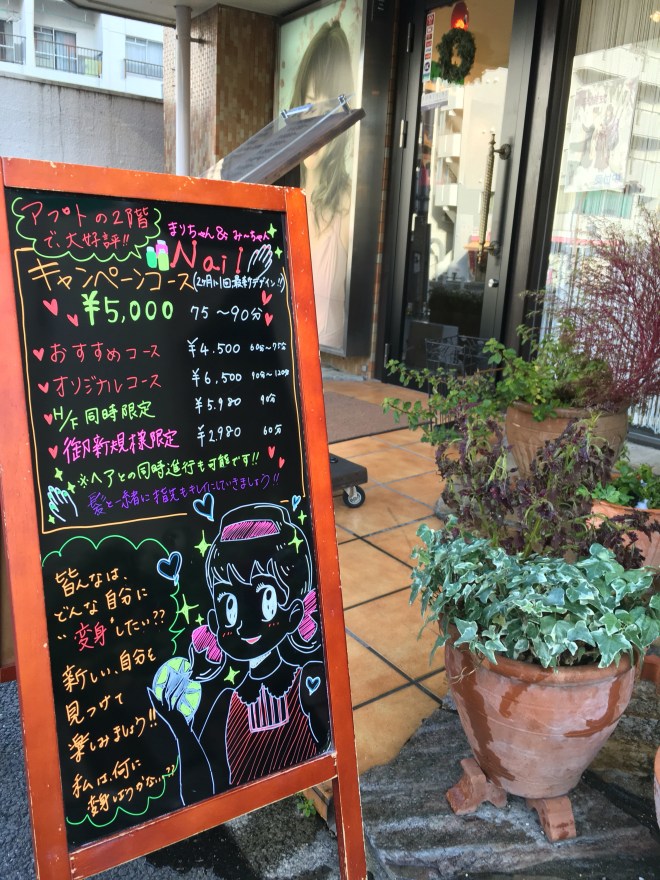 アプトの2階
で、大好評!!
まりちゃん&み〜ちゃん
Nail
キャンペーンコース(2ヶ月に1回最新デザイン!!)
¥5,000 75〜90分
おすすめコース ¥4.500 60分〜75分
オリジナルコース ¥6,500 90分〜120分
H/F 同時限定 ¥5.980 90分
御新規様限定 ¥2980 60分
※ヘアとの同時進行も可能です!!
髪と一緒に指先もキレイにしていきましょう!!
皆んなは、
どんな自分に
"変身"したい??
新しい、自分を
見つけて
楽しみましょう!!
私は、何に
変身しようかな〜??